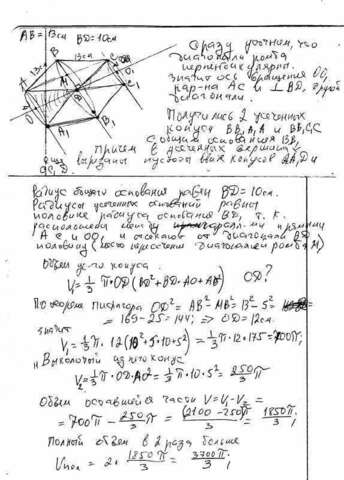 AB = 13см BD=10см
Сразу уточним, что
диагонали ромба
перпендикулярны.
значит ось вращения OO₁
пар-на AC и ⊥ BD, другой
диагонали.
Получились 2 усеченных
конуса BB₁A₁A и BB₁C₁C
С общим основания BB₁
Причем в усеченных вершины,
вырезаны пустоты двух конусов AA₁D и
CC₁D.
Радиус общего основания равен BD = 10см.
Радиусы усеченных оснований равны
половине радиуса основания BD, т. к.
расположены между паралл-ми прямыми
AC и OO₁ и отсекают от диагонали BD
половину (место пересечения диагоналей ромба M)
Объем ус-го конуса
V₁ = 1/3 π·OD(BD²+BD·AO+AO²) OD?
По теореме Пифагора OD² = AB²-MB² = 13²-5² =
= 169-25 = 144; => OD = 12см.
значит
V₁ = 1/3 π·12(10²+5·10+5²) = 1/3 π·12·175 = 700π;
V₂ = 1/3 π·OD·AO² = 1/3 π·10·5² = 250/3 π
Объем оставшейся части V = V₁-V₂ =
= 700π - 250/3 π = (2100-250)π/3 = 1850π/3;
Полный объем в 2 раза больше
Vпол = 2· 1850π/3 = 3700π/3;